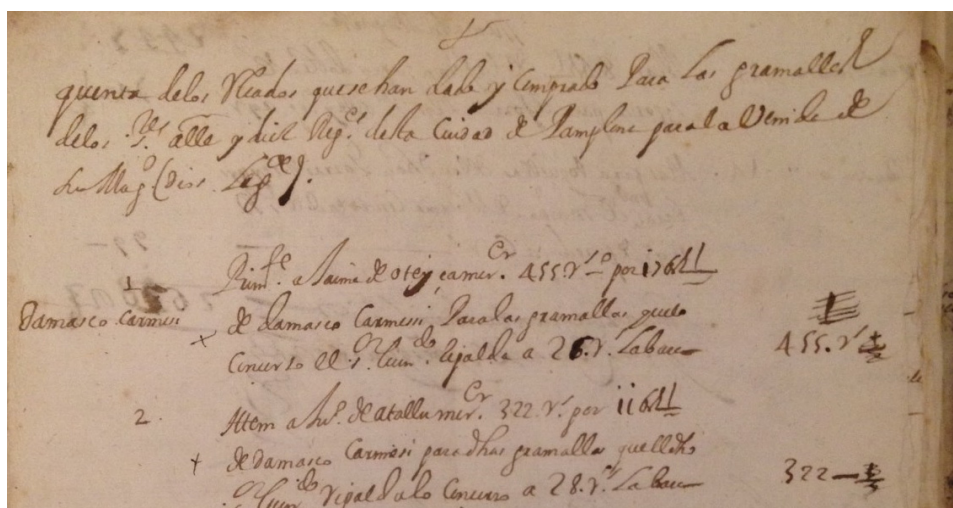 quenta delos Recados que se han dado y Comprado Para Las gramallas
delos s.res alLe y dich Reg.es desta Ciudad de Pamplona para la Venida de
Su Mag.d (Dios Leg.de).
1 Prim.te a Jaime de oteyça mer.cr 455 r.s por
Damasco Carmesi de damasco Carmesi Para las gramallas que lo
Concerto el s.or a 26 r.s La bara 455. r.s
2. Ittem a Ju.o de atallu mer.cr 322. r.s por
de Damasco Carmesi para dhas gramallas que
lo Concerto a 28. r.s La bara 322